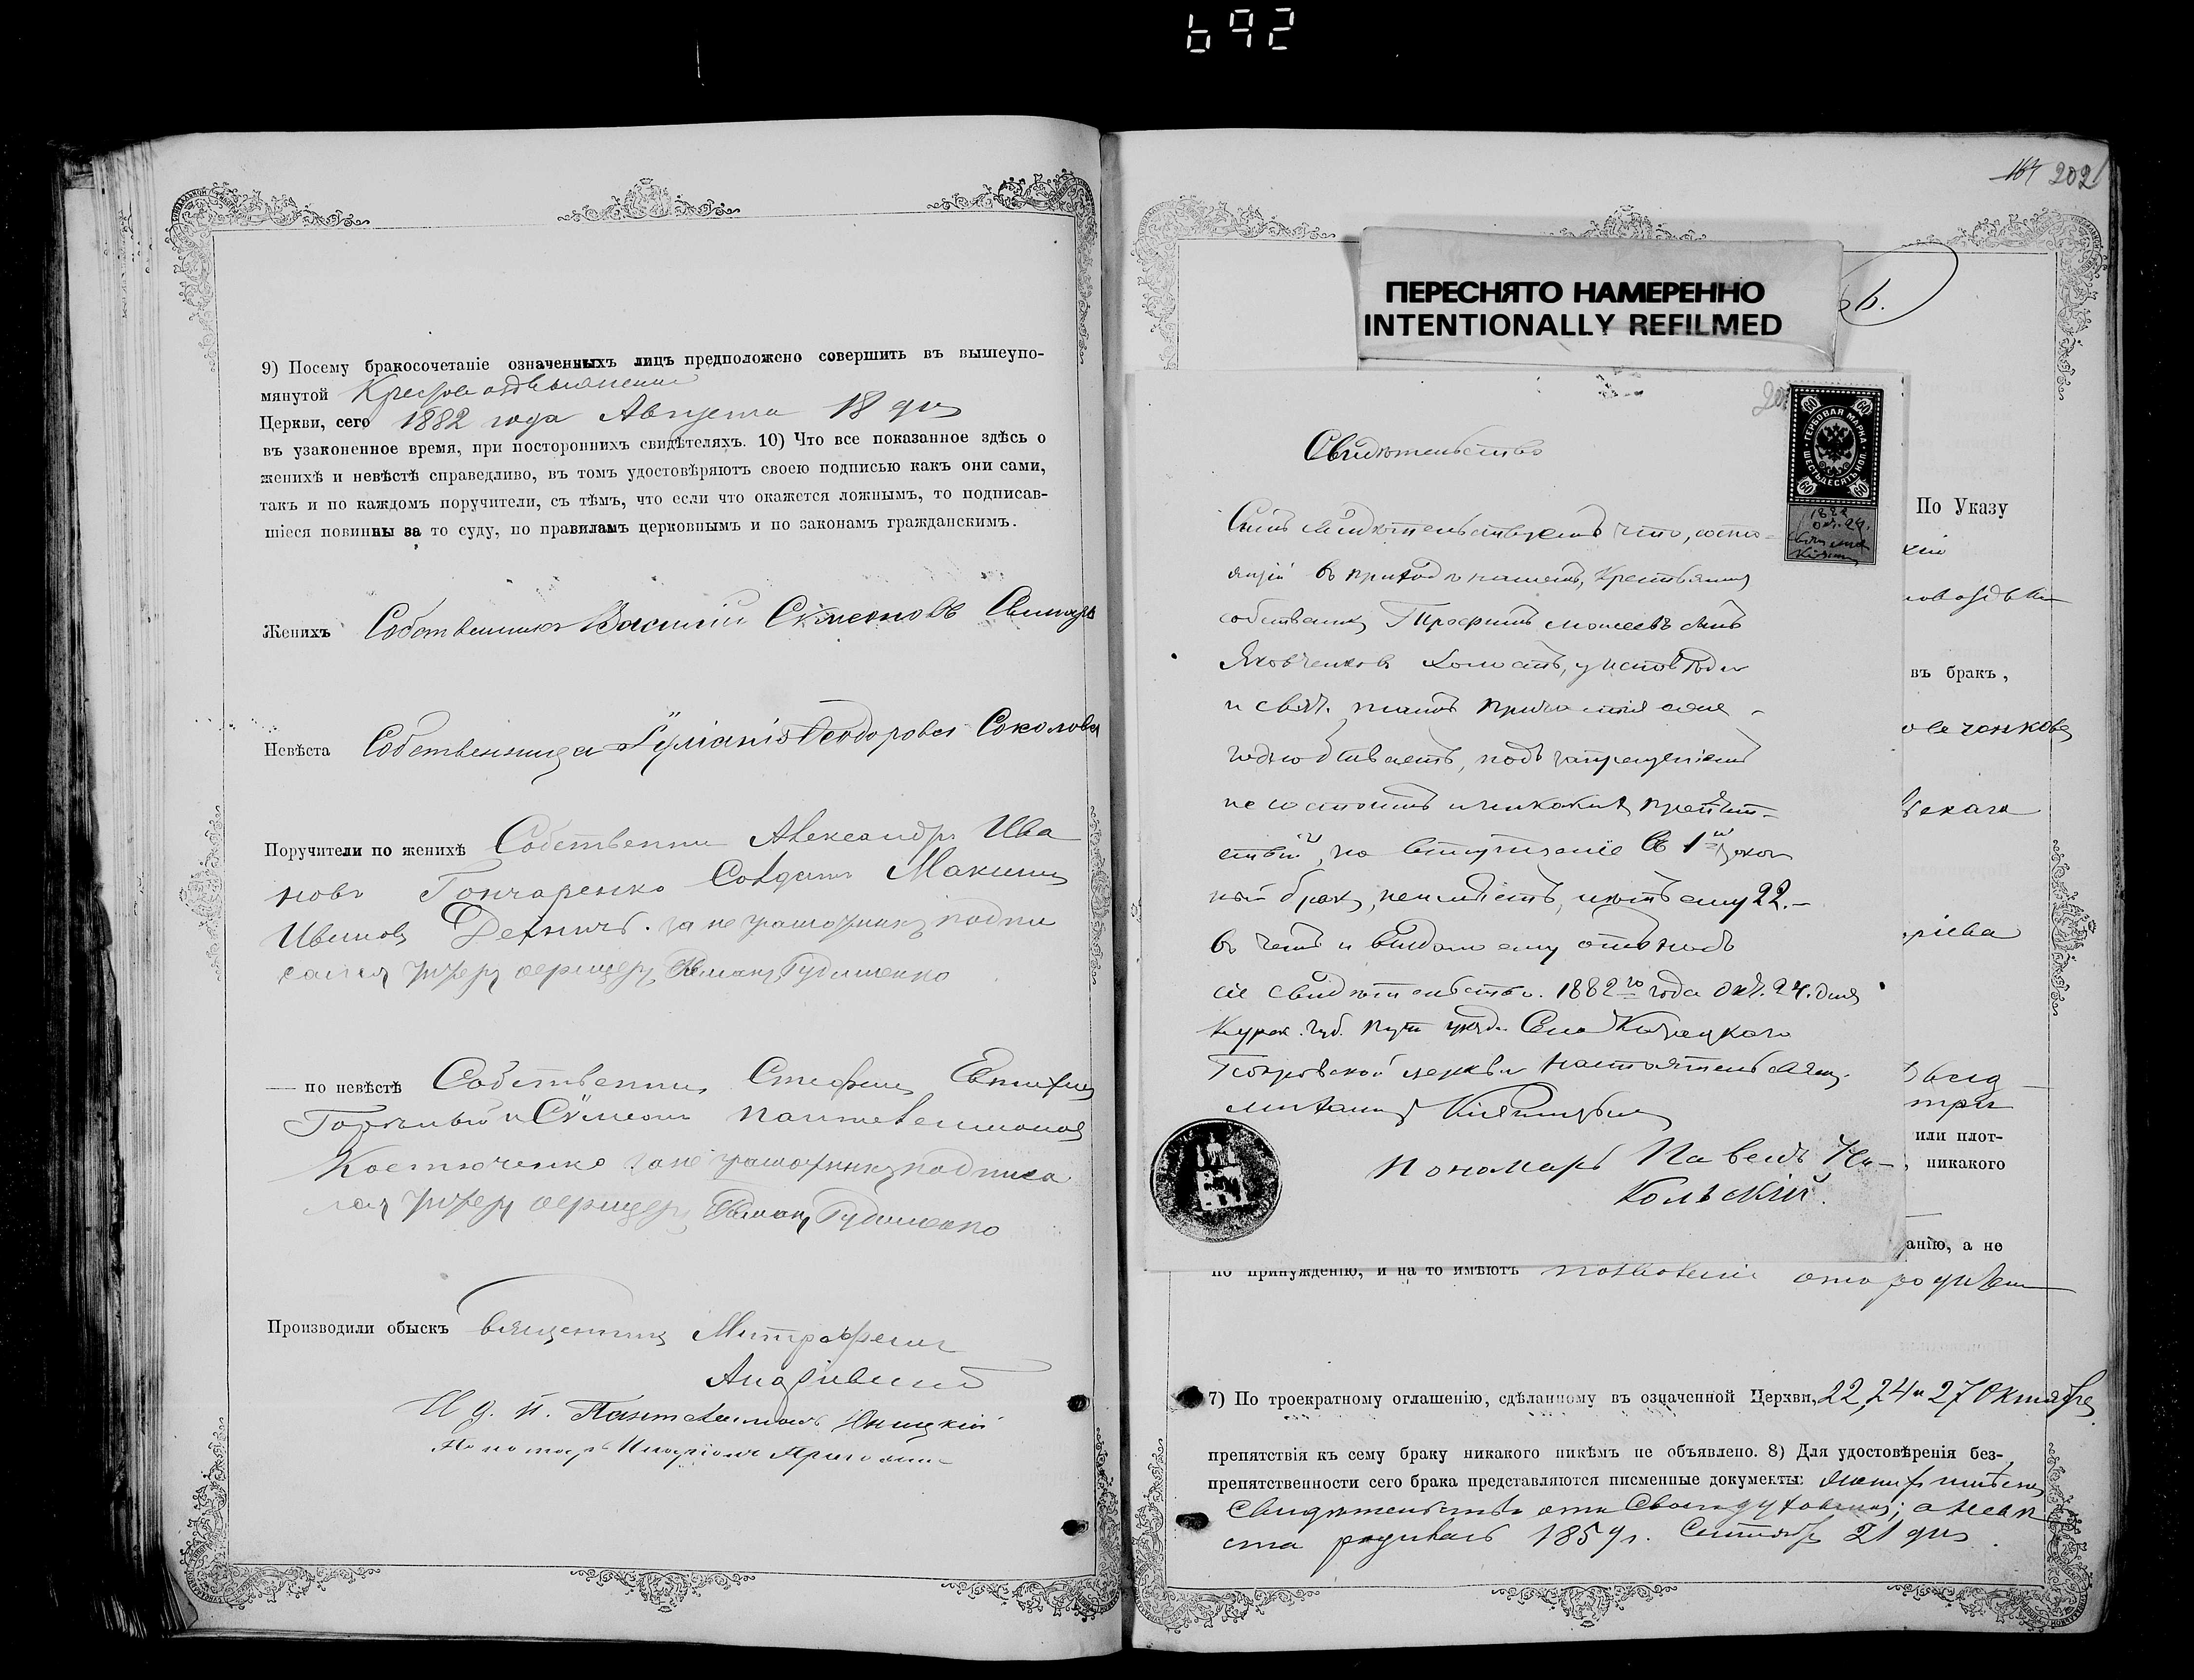 692
9) Посему бракосочетаніе означенныхъ лицъ предположено совершить въ вышеупо-
мянутой Крестовоздвиженской
Церкви, сего 1882 года Августа 18 дня
въ узаконенное время, при постороннихъ свидѣтеляхъ. 10) Что все показанное здѣсь о
женихѣ и невѣстѣ справедливо, въ томъ удостовѣряютъ своею подписью какъ они сами,
такъ и по каждомъ поручители, съ тѣмъ, что если что окажется ложнымъ, то подписав-
шіеся повинны за то суду, по правиламъ церковнымъ и по законамъ гражданскимъ.
Женихъ Собственникъ Василій Сѵмеоновъ
Невѣста Собственница Іуліанія Ѳеодорова Соколова
Поручители по женихѣ Собственникъ Александръ Ива
новъ Гончаренко Солдатъ Максимъ
Ивановъ за неграмотныхъ подпи
сался унтеръ офицеръ Романъ Гудименко
— по невѣстѣ Собственникъ Стефанъ
и Сѵмеонъ Пантелеимоновъ
Костюченко за неграмотныхъ подписа
лся унтеръ офицеръ Романъ Гудименко
Производили обыскъ Священникъ Митрофанъ
Андріевскій
И. д. п. Пантелеимонъ Юницкій
Пономарь
164 202
ПЕРЕСНЯТО НАМЕРЕННО
INTENTIONALLY REFILMED
ГЕРБОВАЯ МАРКА
ШЕСТЬДЕСЯТЪ КОП.
60 60 60 60
1882
Окт. 24.
Свидѣтельство
Симъ свидѣтельствуемъ что, состо-
ящій въ приходѣ нашемъ, Крестьянинъ
собственникъ Трофимъ Моисеевъ сынъ
Яковченковъ холостъ, у исповѣди
и свят. таинъ причастія еже-
годно бываетъ, подъ запрещеніемъ
не состоитъ и никакихъ препят-
ствій, на вступленіе въ 1й закон
ный бракъ, неимѣетъ, лѣтъ ему 22.-
въ чемъ и выдано ему отъ насъ
сіе свидѣтельство. 1882го года Окт. 24. дня
Курск. губ. Пут. уѣзда Села Казацкаго
Покровской церкви настоятель свящ.
Пономарь Павелъ Ни-
кольскій.
По Указу
въ бракъ,
три
или плот-
никакого
анію, а не
по принужденію, и на то имѣютъ позволеніе отъ родителей
7) По троекратному оглашенію, сдѣланному въ означенной Церкви, 22, 24 и 27 Октября
препятствія къ сему браку никакого никѣмъ не объявлено. 8) Для удостовѣренія без-
препятственности сего брака представляются писменные документы: женихъ имѣетъ
Свидѣтельство отъ Своего духовника, а невѣ
ста родилась 1859 г. Сентября 21 дня